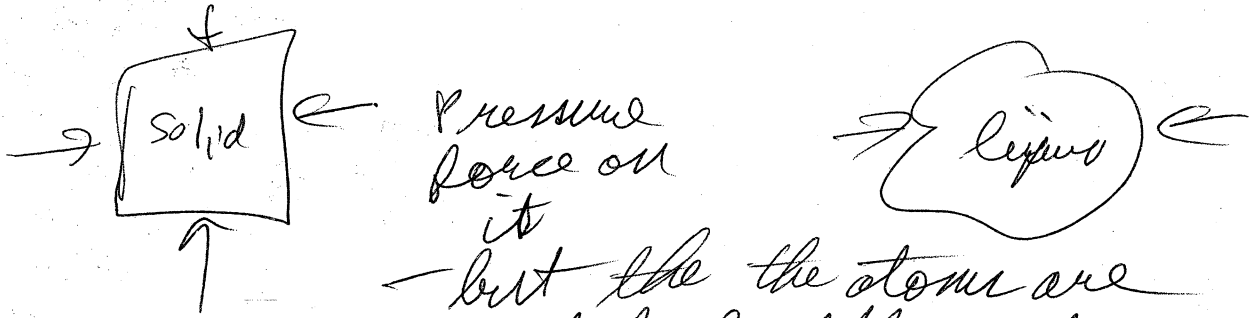 solid
Pressure
force on
it
liquid
- but the the atoms are